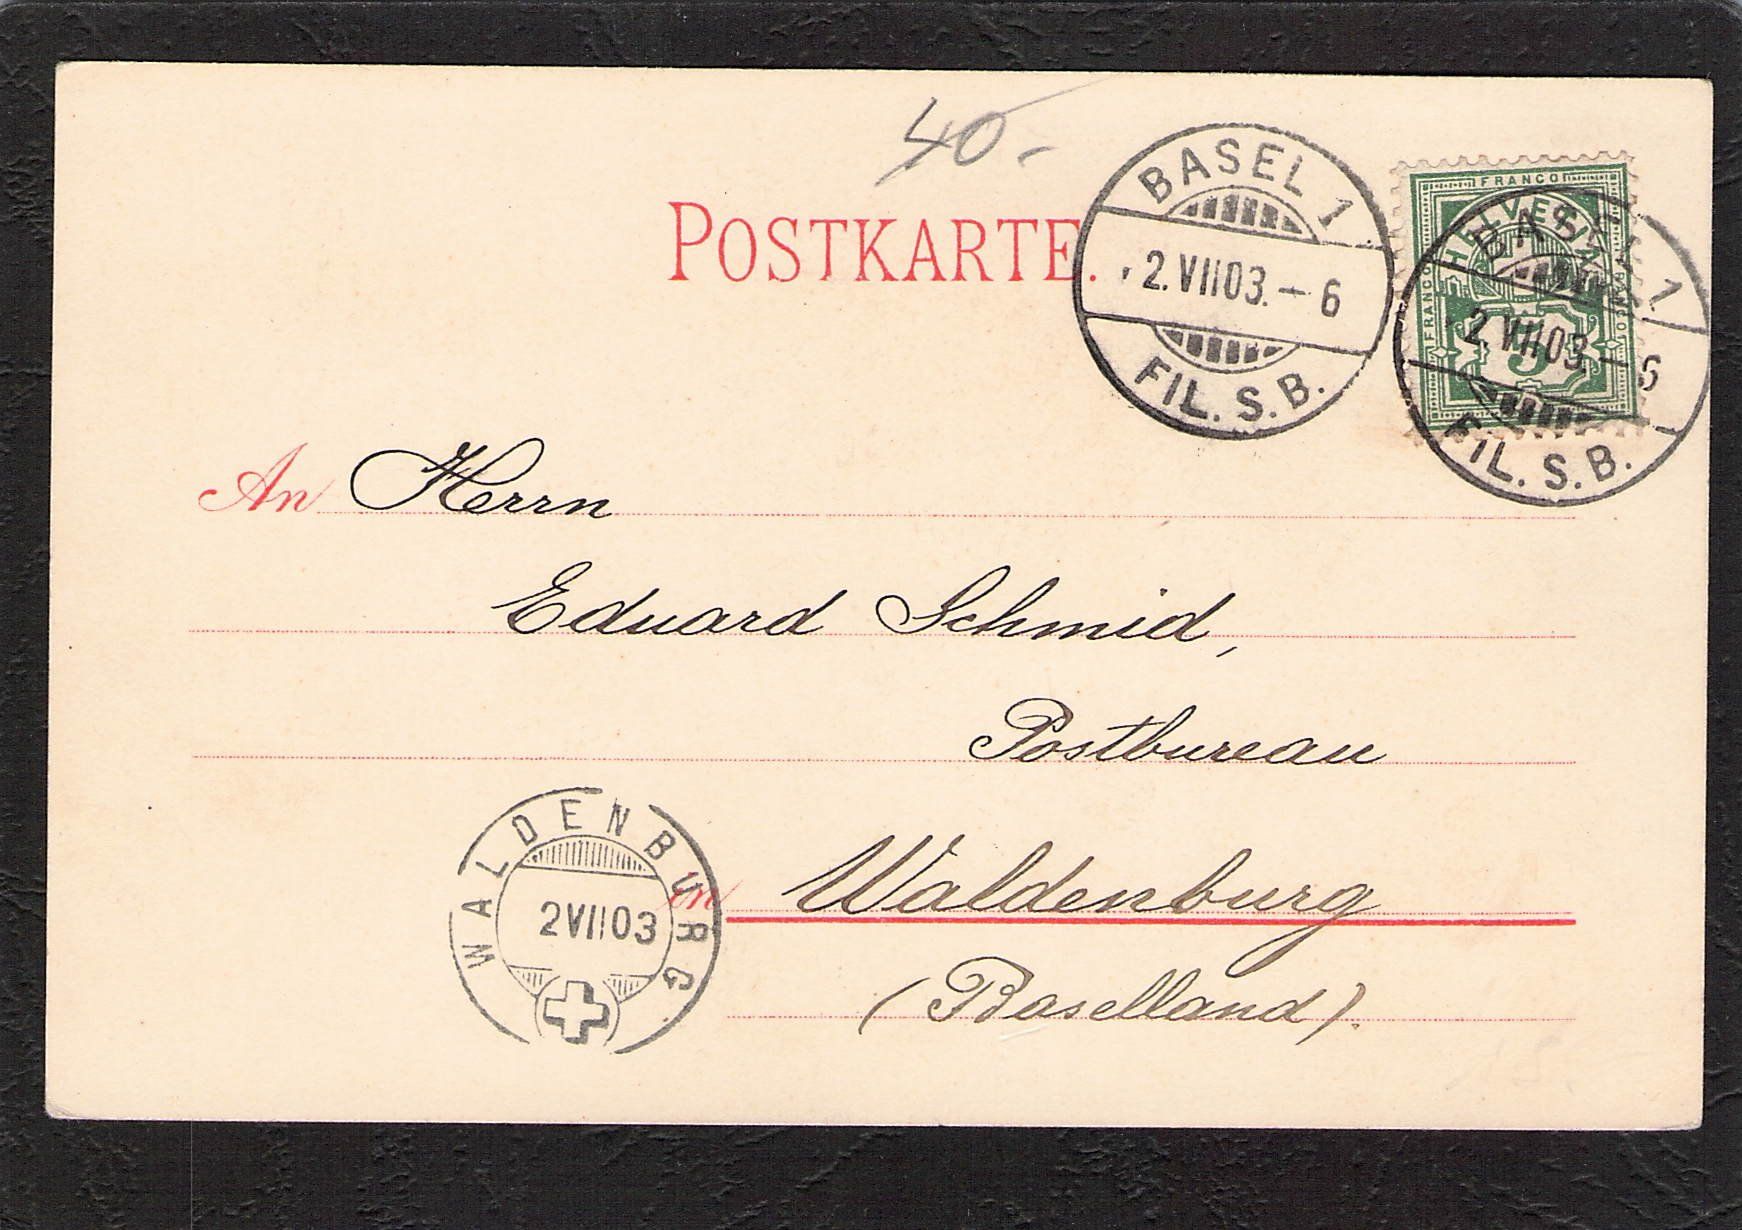 40.-
POSTKARTE.
BASEL 1
2.VII 03.-6
FIL. S. B.
FRANCO
HELVETIA
FRANCO
5
BASEL 1
2.VII 03.-6
FIL. S. B.
An Herrn
Eduard Schmid,
Postbureau
in Waldenburg
(Baselland).
WALDENBURG
2 VII 03